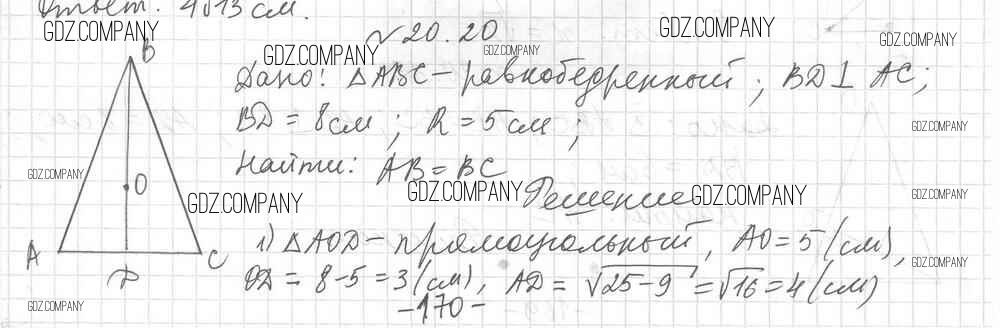 Ответ: 4√13 см.
GDZ.COMPANY
№ 20.20
GDZ.COMPANY
GDZ.COMPANY
GDZ.COMPANY
GDZ.COMPANY
GDZ.COMPANY
B
Дано: △ABC – равнобедренный; BD ⊥ AC;
BD = 8 см; R = 5 см;
GDZ.COMPANY
Найти: AB = BC
GDZ.COMPANY
O
GDZ.COMPANY
GDZ.COMPANY
Решение
GDZ.COMPANY
GDZ.COMPANY
1) △AOD – прямоугольный, AO = 5 (см),
A
C
GDZ.COMPANY
D
OD = 8-5 = 3 (см), AD = √25-9 = √16 = 4 (см)
GDZ.COMPANY
-170-